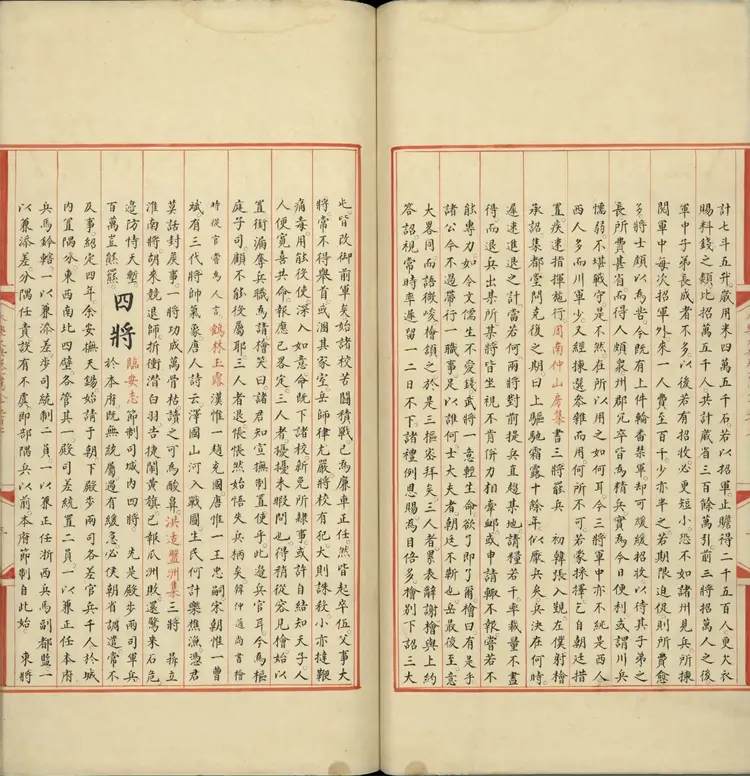 計七斗五升歲用米四萬五千石若以招軍止贍得二千五百人更欠衣
賜料錢之類比招萬五千人共計歲省三百餘萬引前三將招萬人之後
軍中子弟長成者不多以後若有招收必更短小恐不如諸州見兵所揀
闕軍中每次招軍外來一人費至百千少亦半之若期限迫促則所費愈
多將士頗以為苦今既有上件輪番禁軍却可緩緩招收以待其子弟之
長所費甚省而得人頗衆州郡冗卒皆為精兵實為今日便利或謂川兵
懦弱不堪戰守是不然在所以用之如何耳今三將軍中亦不純是西人
西人多而川軍少又經揀選參雜而用何所不可若蒙採擇乞自朝廷措
置疾速指揮施行周南仲山房集書三將兵 初韓張入覲左僕射檜
承詔集都堂問克復之期曰上驅馳霜露十餘年似厭兵矣兵決在何時
遲速進退之計當若何兩將對前提兵直趨某地請糧若干率裁量不盡
得而退兵出某所某將皆坐視不肯併力相牽或申請輒不報嘗若不
能專力如今文儒生不愛錢武將一意輕生命欲了即了爾檜曰有是乎
諸公今不過帶行一職事足以誰何士大夫者朝廷不靳也岳最後至意
大畧同而語徵峻檜頷之於是三樞密拜矣三人者累表辭謝檜與上約
答詔視常時率遲留一二日不下諸禮例恩賜為目倍多檜別下詔三大
屯皆改御前軍矣始諸校苦鬬積戰已為廉車正任然皆起卒伍父事大
將常不得舉首或溷其家室岳師律尤嚴將校有犯大則誅狄小亦撻鞭
痛毒用能役使深入如意命既下諸校新免所隸事或許自結知天子人
人便寬喜共命報應已畧定三人者擾擾未暇問也得稍從容見檜始以
置銜漏奪兵職為請檜笑曰諸君知宣撫制置使乎此邊兵官耳今為樞
庭子司顧不能役屬耶三人者退悵悵然始悟失兵柄矣韓仲通尚書檜
時從官嘗為人言鶴林玉露漢惟一趙充國唐惟一王忠嗣宋朝惟一曹
斌有三代將帥氣象唐人詩云澤國山河入戰圖生民何計樂樵漁憑君
莫話封矦事一將功成萬骨枯讀之可為酸鼻洪适盤洲集三將 鼎立
淮南將胡來競退師折衝潛白羽告捷閙黃旗已報瓜洲敗還驚采石危
邊防恃天塹百萬豈熊羆
四將
臨安志節制司城內四將 先是殿步兩司軍兵
於本府既無統屬過有緩急必俟朝省調遣常不
及事紹定四年余安撫天錫始請于朝下殿步兩司各差官兵千人於城
內置隅分東西南北四壁各管其一殿司差統置二員一以兼正任本府
兵馬鈐轄一以兼添差步司統制二員一以兼正任浙西兵馬副都監一
以兼添差分隅任責設有不虞即部隅兵以前本府節制自此始 東將